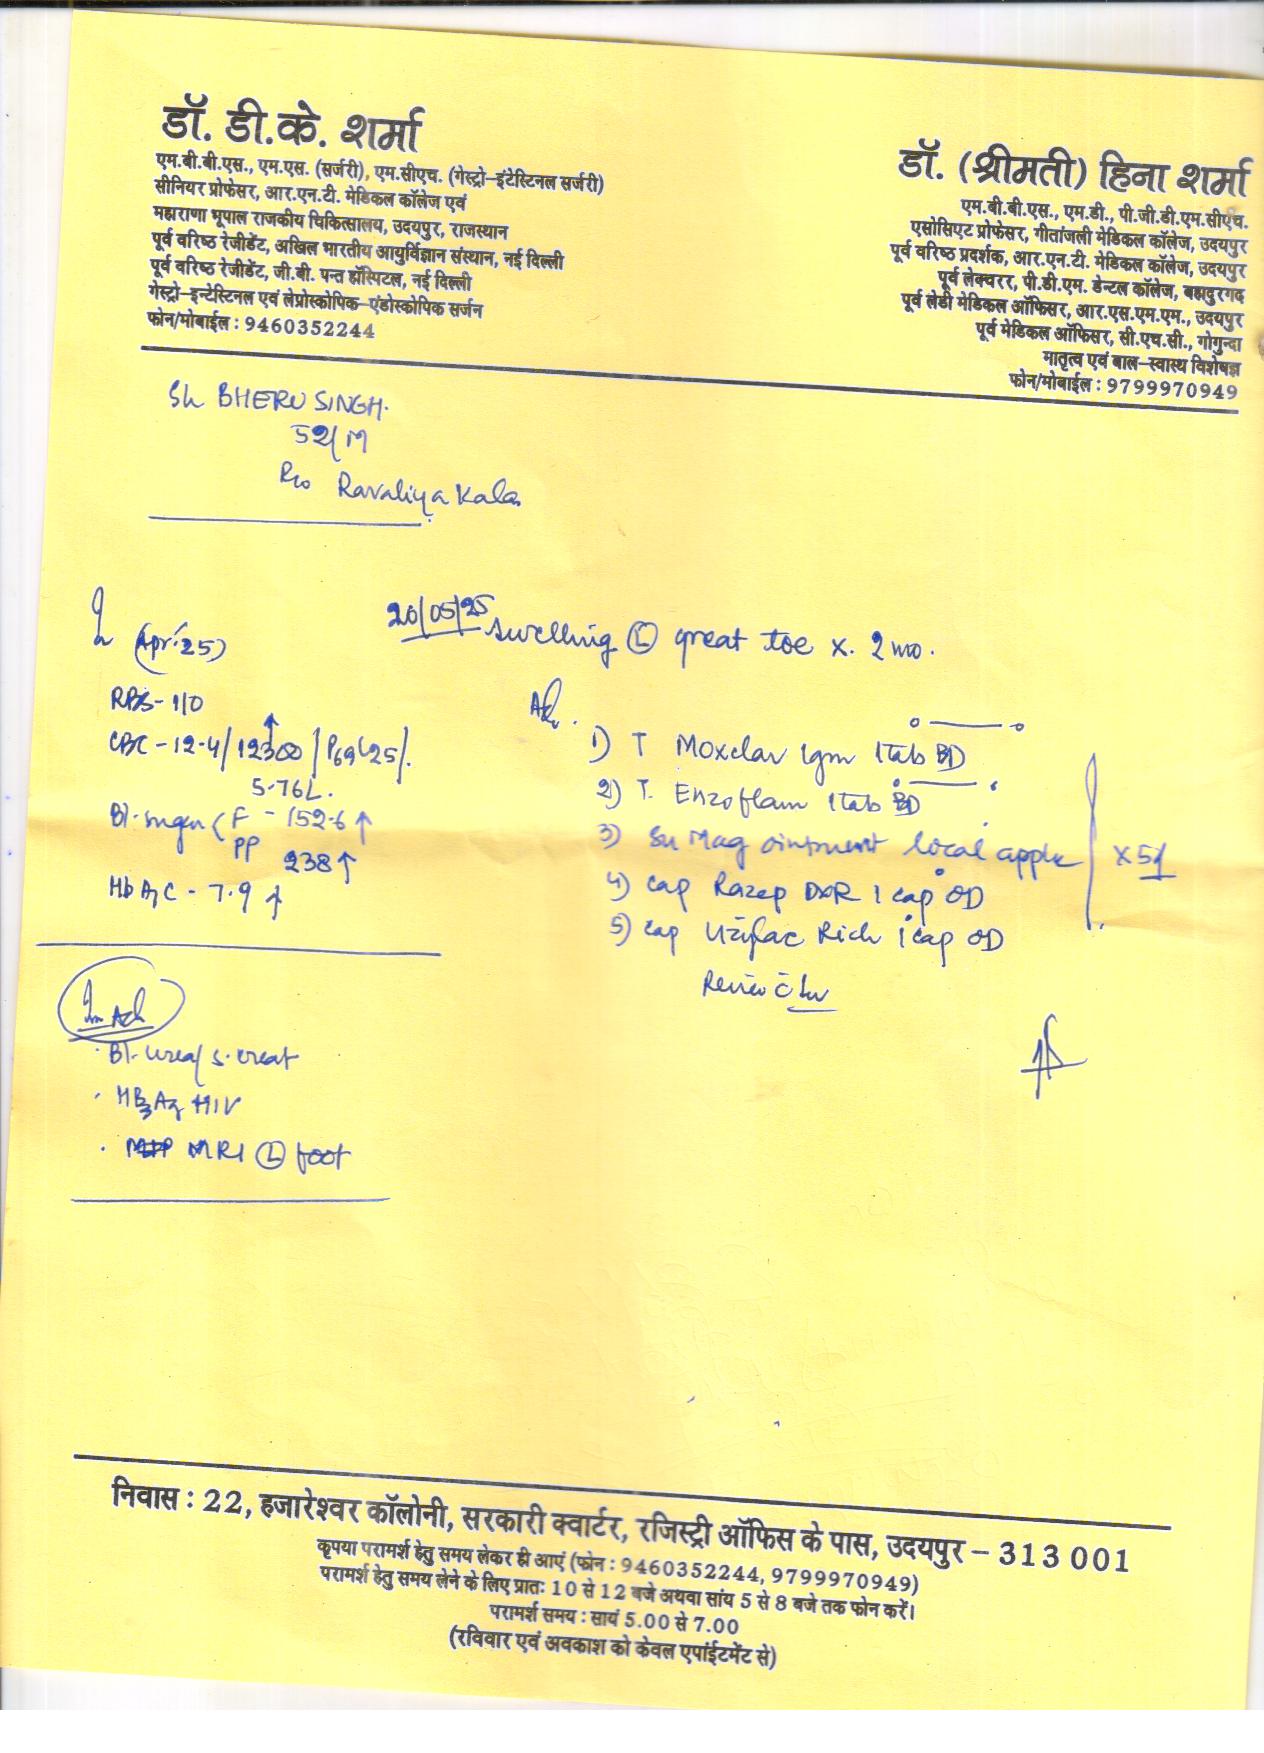 डॉ. डी.के. शर्मा
एम.बी.बी.एस., एम.एस. (सर्जरी), एम.सीएच. (गेस्ट्रो-इंटेस्टिनल सर्जरी)
सीनियर प्रोफेसर, आर.एन.टी. मेडिकल कॉलेज एवं
महाराणा भूपाल राजकीय चिकित्सालय, उदयपुर, राजस्थान
पूर्व वरिष्ठ रेजीडेंट, अखिल भारतीय आयुर्विज्ञान संस्थान, नई दिल्ली
पूर्व वरिष्ठ रेजीडेंट, जी.बी. पन्त हॉस्पिटल, नई दिल्ली
गेस्ट्रो-इन्टेस्टिनल एवं लेप्रोस्कोपिक-एंडोस्कोपिक सर्जन
फोन/मोबाईल : 9460352244
डॉ. (श्रीमती) हिना शर्मा
एम.बी.बी.एस., एम.डी., पी.जी.डी.एम.सीएच.
एसोसिएट प्रोफेसर, गीतांजली मेडिकल कॉलेज, उदयपुर
पूर्व वरिष्ठ प्रदर्शक, आर.एन.टी. मेडिकल कॉलेज, उदयपुर
पूर्व लेक्चरर, पी.डी.एम. डेन्टल कॉलेज, बहादुरगढ़
पूर्व लेडी मेडिकल ऑफिसर, आर.एस.एम.एम., उदयपुर
पूर्व मेडिकल ऑफिसर, सी.एच.सी., गोगुन्दा
मातृत्व एवं बाल-स्वास्थ्य विशेषज्ञ
फोन/मोबाईल : 9799970949
Sh BHERU SINGH.
52/M
R/o Ravaliya Kala
20/05/25
swelling Ⓛ great toe x. 2 mo.
(Apr. 25)
RBS - 110
CBC - 12.4/ 12300 ↑ / P69 L25 /.
5.76L.
Bl. sugar ( F - 152.6 ↑
PP 238 ↑
HbA1C - 7.9 ↑
Adv.
1) T Moxclav 1gm 1tab BD
2) T. Enzoflam 1tab BD
3) Su Mag ointment local apple
4) cap Razep DXR 1 cap OD
5) cap Uzifac Rich 1 cap OD
x 5d
Review c̄ Inv
Inv Adv
. Bl. urea/ s. creat
. HBsAg HIV
. MRI Ⓛ foot
निवास : 22, हजारेश्वर कॉलोनी, सरकारी क्वार्टर, रजिस्ट्री ऑफिस के पास, उदयपुर – 313 001
कृपया परामर्श हेतु समय लेकर ही आएं (फोन : 9460352244, 9799970949)
परामर्श हेतु समय लेने के लिए प्रातः 10 से 12 बजे अथवा सांय 5 से 8 बजे तक फोन करें।
परामर्श समय : सायं 5.00 से 7.00
(रविवार एवं अवकाश को केवल एपांईटमेंट से)